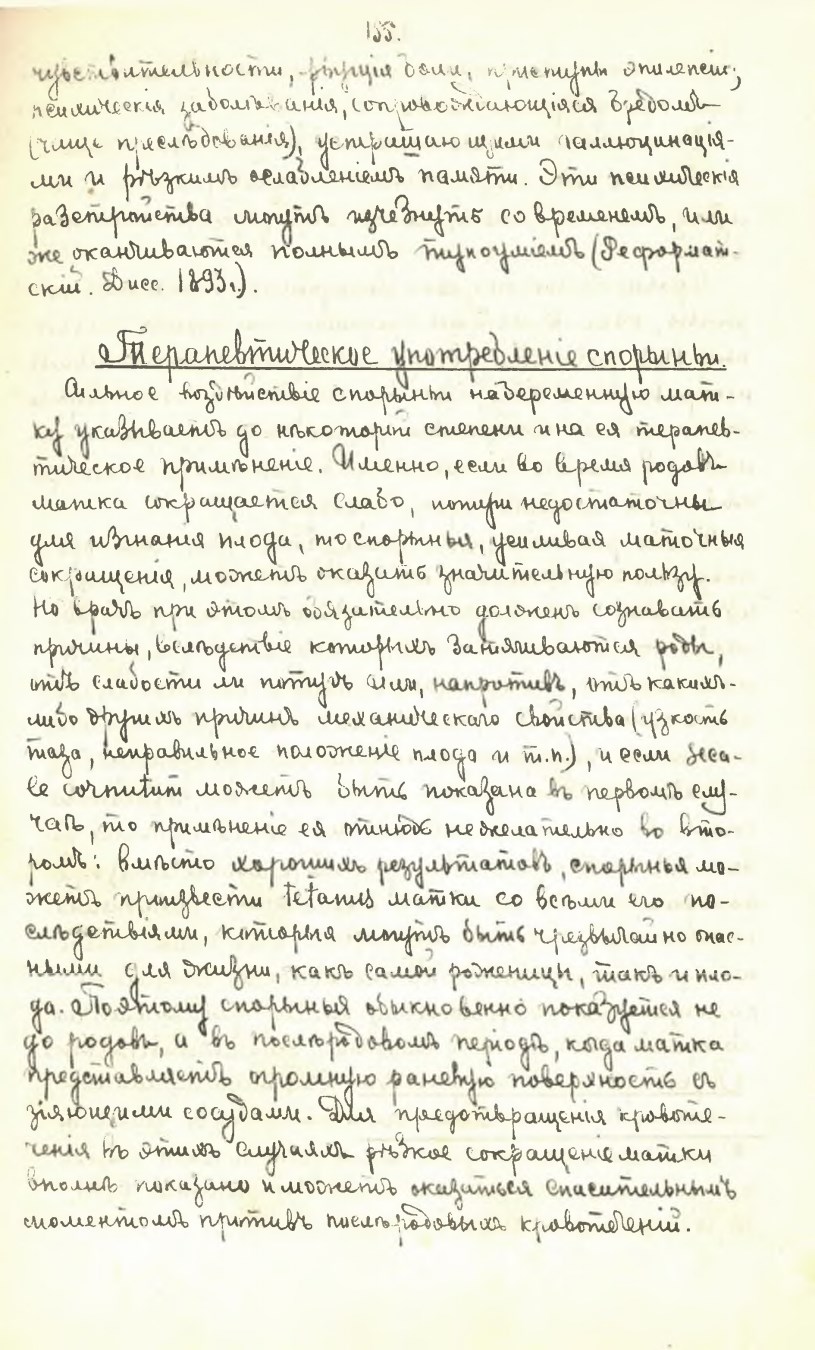 155.
чувствительности, боли, приступы эпилепсіи;
психическія заболѣванія, сопровождающіяся бредомъ
(чаще преслѣдованія), устрашающими галлюцинація-
ми и рѣзкимъ ослабленіемъ памяти. Эти психическія
разстройства могутъ изчезнуть со временемъ, или
же оканчиваются полнымъ тупоуміемъ (Реформат-
скій. Дисс. 1893г.).
Терапевтическое употребленіе спорыньи.
Сильное воздѣйствіе спорыньи на беременную мат-
ку указываетъ до нѣкоторой степени и на ея терапев-
тическое примѣненіе. Именно, если во время родовъ
матка сокращается слабо, потуги недостаточны
для изгнанія плода, то спорынья, усиливая маточныя
сокращенія, можетъ оказать значительную пользу.
Но врачъ при этомъ обязательно долженъ сознавать
причины, вслѣдствіе которыхъ затягиваются роды,
отъ слабости ли потугъ или, напротивъ, отъ какихъ-
либо другихъ причинъ механическаго свойства (узкость
таза, неправильное положеніе плода и т.п.), и если Seca-
le cornutum можетъ быть показана въ первомъ слу-
чаѣ, то примѣненіе ея отнюдь нежелательно во вто-
ромъ: вмѣсто хорошихъ результатовъ, спорынья мо-
жетъ произвести tetanus матки со всѣми его по-
слѣдствіями, которыя могутъ быть чрезвычайно опас-
ными для жизни, какъ самой роженицы, такъ и пло-
да. Поэтому спорынья обыкновенно показуется не
до родовъ, а въ послѣродовомъ періодѣ, когда матка
представляетъ огромную раневую поверхность съ
зіяющими сосудами. Для предотвращенія кровоте-
ченія въ этихъ случаяхъ рѣзкое сокращеніе матки
вполнѣ показано и можетъ оказаться спасительнымъ
моментомъ противъ послѣродовыхъ кровотеченій.